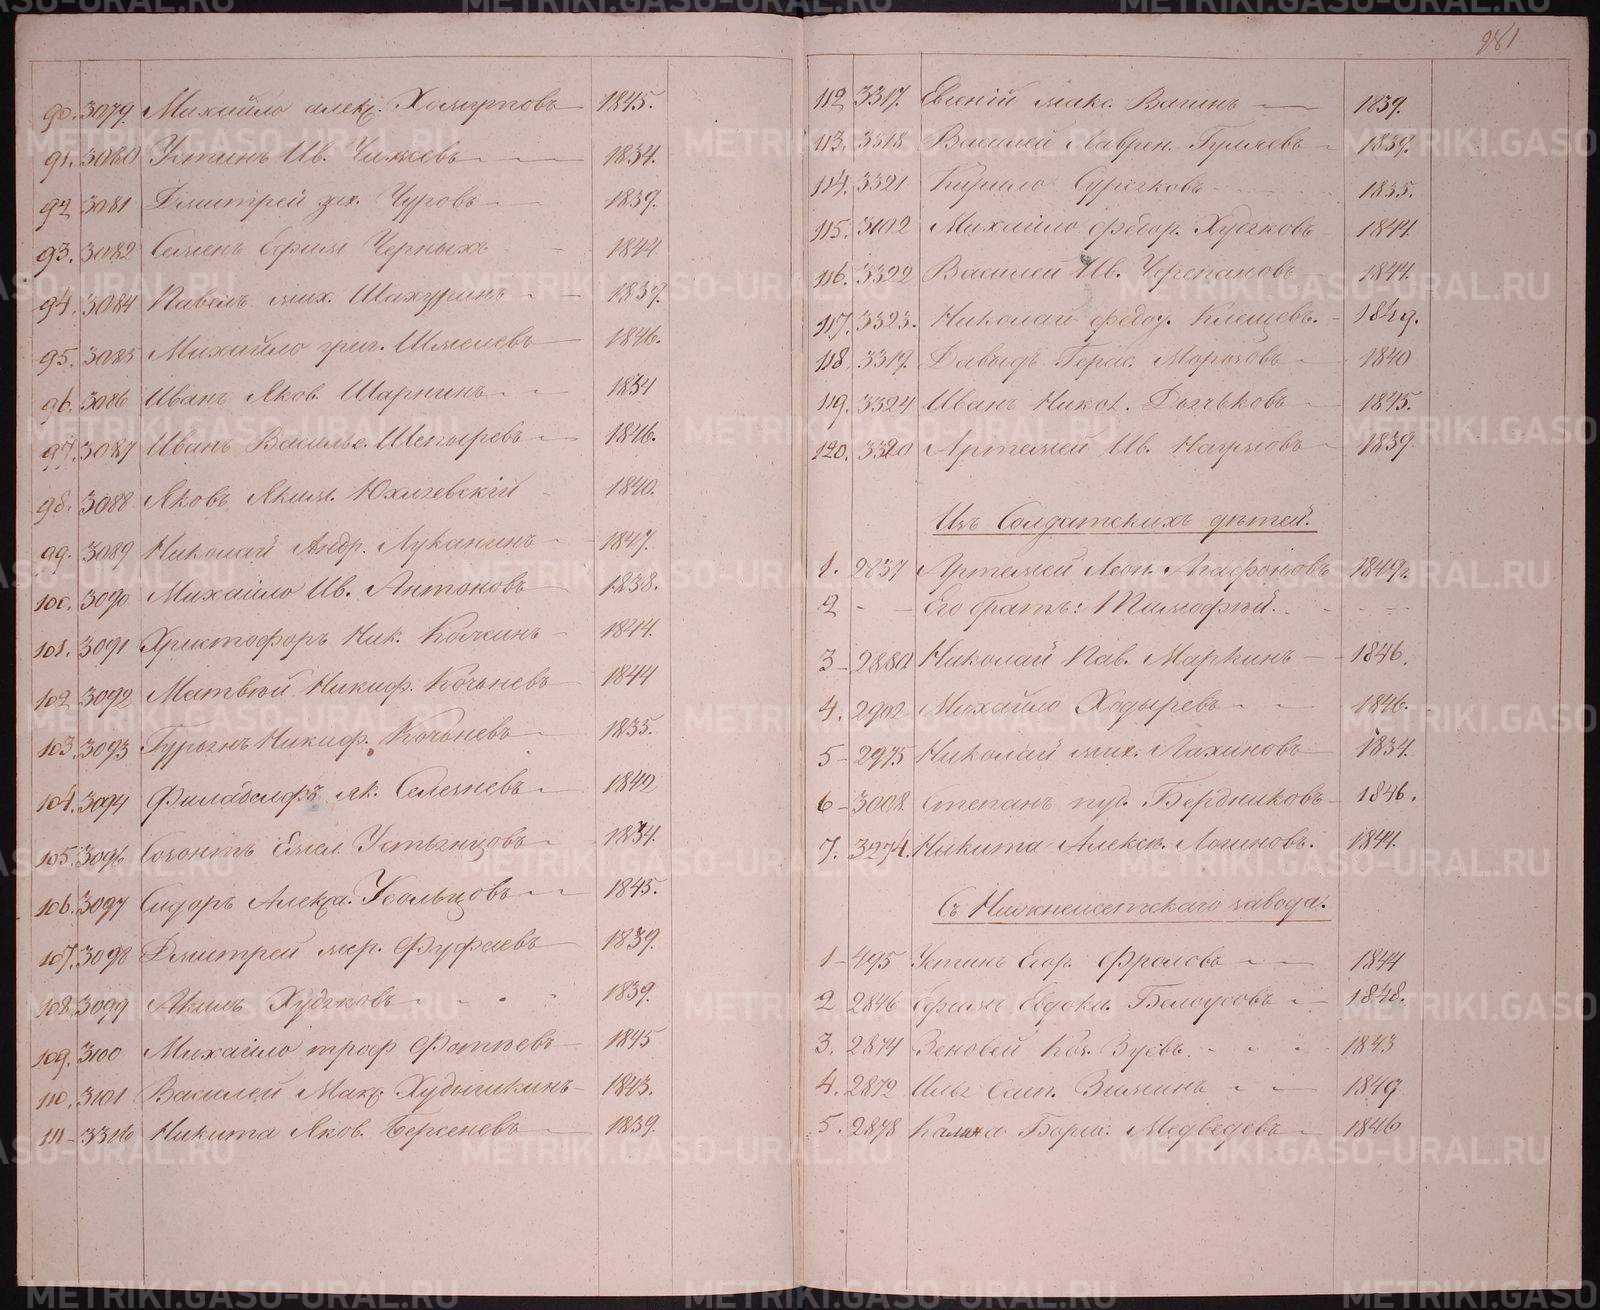 981
90. 3079. Михайло алекс. Хомутовъ 1845.
91. 3080 Устинъ Ив. Чижовъ 1834.
92 3081 Дмитрей зах. Чуровъ 1839.
93. 3082 Семенъ Ефим Черныхъ 1844
94. 3084 Павелъ мих. Шахуринъ 1839.
95. 3085 Михайло григ. Шмелевъ 1846.
96. 3086 Иванъ Яков. Шарнинъ 1834
97. 3087 Иванъ Василье. Шепыревъ 1846.
98. 3088 Яковъ Яким. 1840.
99. 3089 Николай Андр. Луканинъ 1847.
100. 3090 Михайло Ив. Антоновъ 1838.
101. 3091 Христофоръ Ник. 1844.
102 3092 Матвѣй Никиф. Кочневъ 1844
103. 3093 Никиф. Кочневъ 1835.
104. 3094 Филаделфъ як. Селезневъ 1842
105. 3096 Созонтъ Емел. Устьянцовъ 1834.
106. 3097 Сидоръ Алекса. Усольцовъ 1845.
107. 3098 Дмитрей Фуфаевъ 1839.
108. 3099 Акимъ Худяковъ 1839.
109. 3100 Михайло троф Фотѣевъ 1845
110. 3101 Василей Макс. Худышкинъ 1843.
111 3316 Никита Яков. Берсеневъ 1839.
112 3317. Евгеній макс. Вагинъ 1839.
113. 3318 Василей Лаврен. Гуляевъ 1839.
114. 3321 Кирило Сурячковъ 1835.
115. 3102 Михайло федор. Худяковъ 1844
116. 3322 Василей Ив. Черепановъ 1844.
117. 3323. Николай федор. Клещевъ. 1849.
118. 3319. Давыдъ Герас. Морозовъ 1840
119. 3324 Иванъ Никол. Дьячковъ 1845.
120. 3320 Артемей Ив. Наумовъ 1839
Изъ Солдатскихъ дѣтей.
1. 2837 Артемей Леон. Агафоновъ 1849.
2 - - Его братъ: Тимофей.
3 - 2880 Николай Пав. Маркинъ 1846.
4. 2902 Михайло Хадыревъ 1846.
5 - 2975 Николай мих. Лахиновъ 1834.
6 - 3008. Степанъ Бердниковъ 1846.
7. 3274. Никита Алексѣ. Логиновъ. 1844.
Съ Нижнеисетскаго завода.
1 - 495 Устинъ Егор. Фроловъ 1844
2 2846 Ефимъ Евдоки. Белоусовъ 1848.
3. 2874 Зеновей Зуевъ 1843
4. 2872 Илья Осип. Зиминъ 1849
5. 2878 Калина Борис. Медведевъ 1846